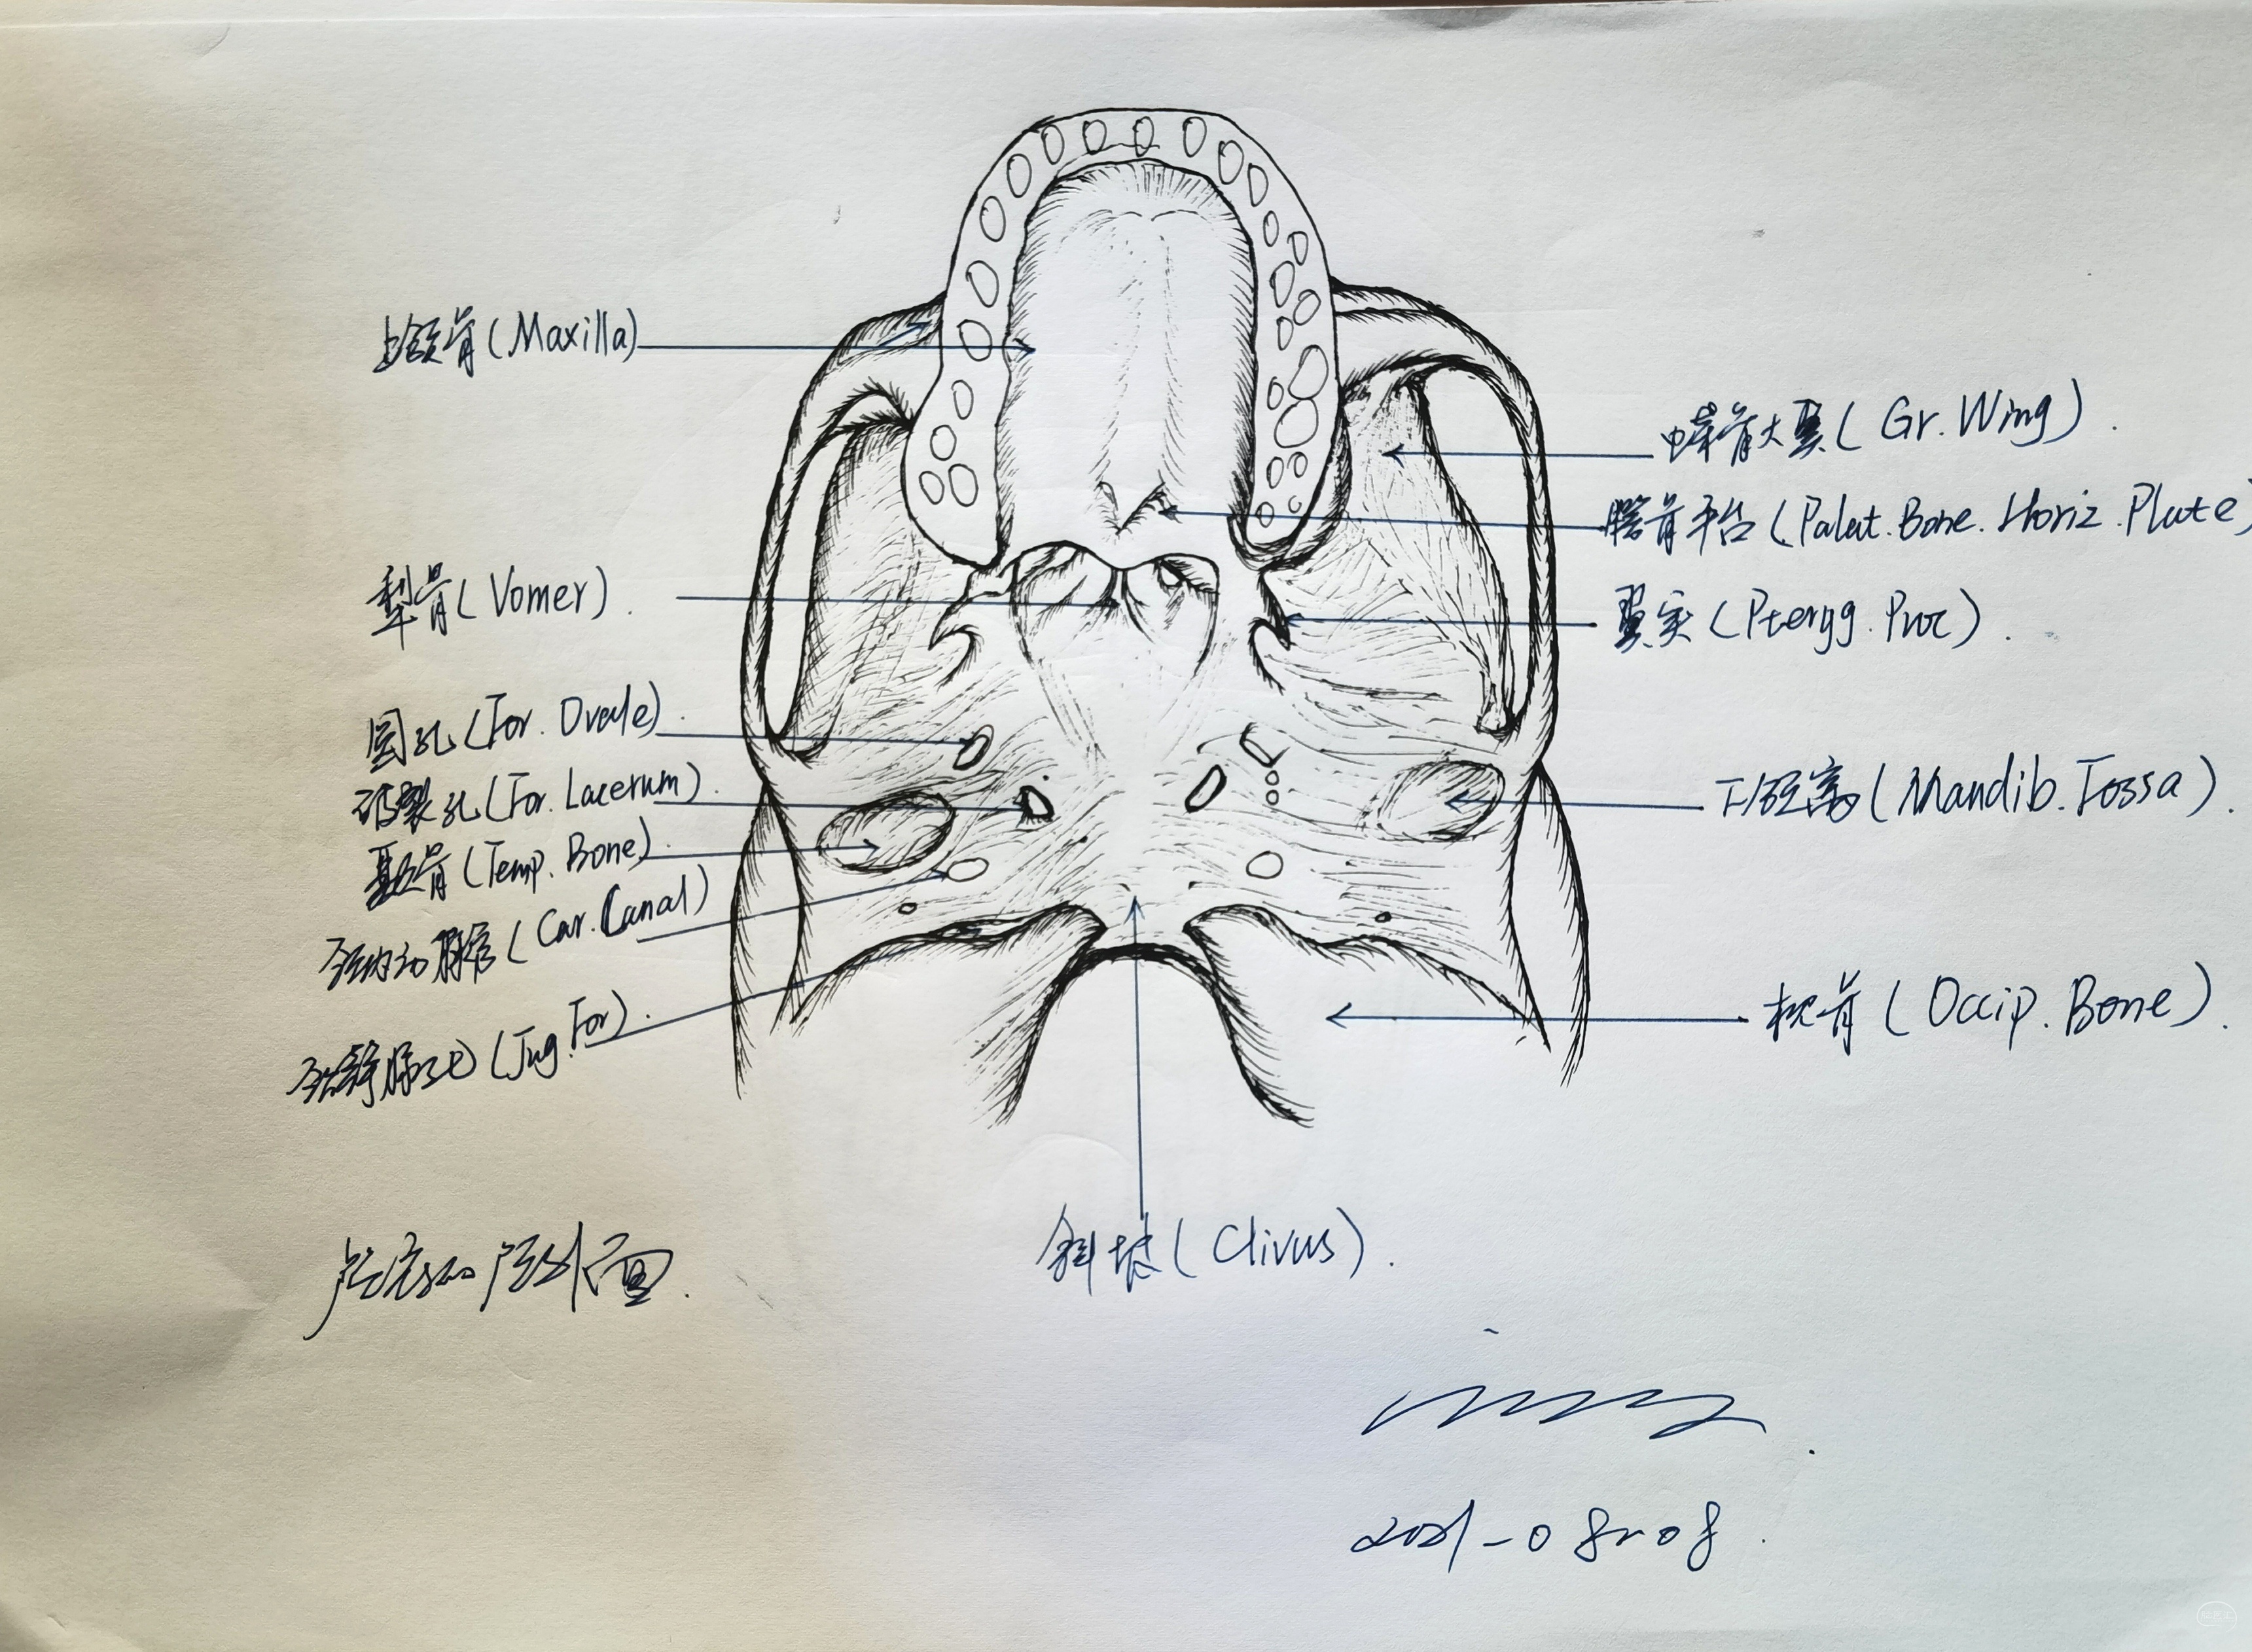 上颌骨(Maxilla)
蝶骨大翼(Gr.Wing).
腭骨平台(Palat.Bone.Horiz.Plate)
犁骨(Vomer).
翼突(Pteryg.Proc).
圆孔(For.Ovale).
破裂孔(For.Lacerum).
下颌窝(Mandib.Fossa).
颞骨(Temp.Bone).
颈内动脉管(Car.Canal)
枕骨(Occip.Bone).
颈静脉孔(Jug.For).
斜坡(Clivus).
颅底的外面.
2021-08-08.